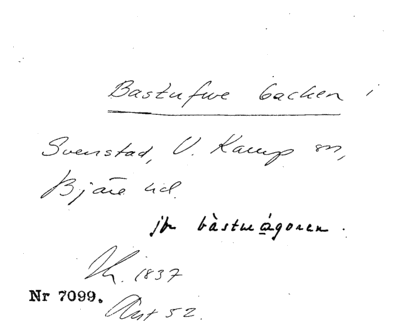 Bastufwe backen i
Svenstad, V. Karup sn,
Bjäre hd.
jfr bàstuágoren.
1837
Nr 7099.
Akt 52.